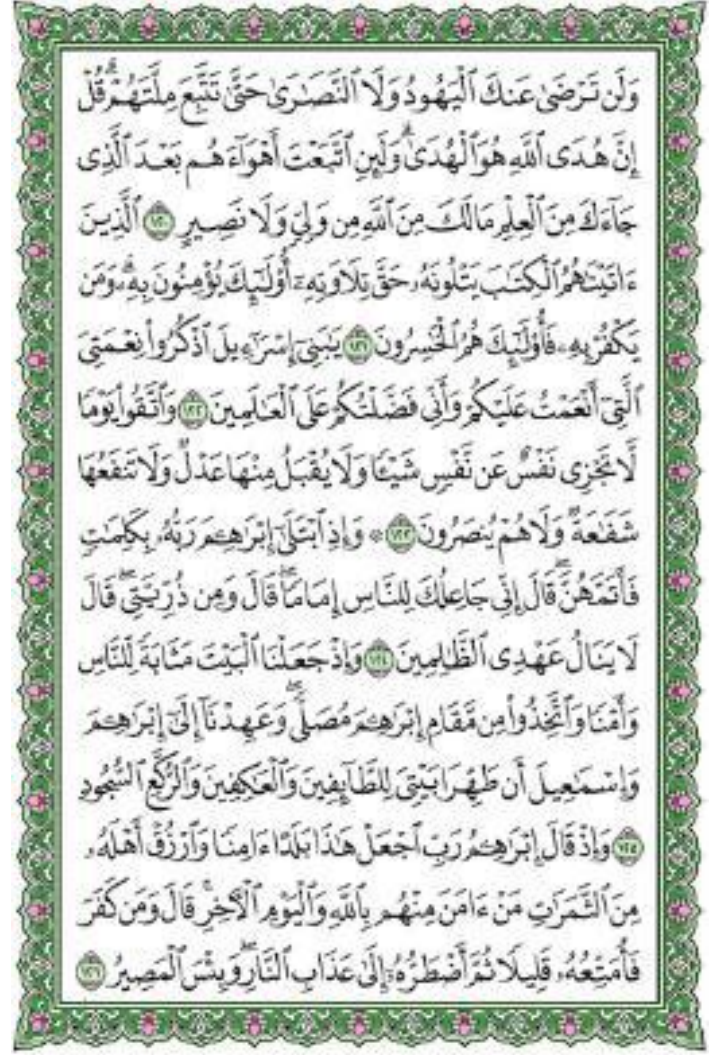 وَلَن تَرْضَىٰ عَنكَ ٱلْيَهُودُ وَلَا ٱلنَّصَٰرَىٰ حَتَّىٰ تَتَّبِعَ مِلَّتَهُمْ ۗ قُلْ
إِنَّ هُدَى ٱللَّهِ هُوَ ٱلْهُدَىٰ ۗ وَلَئِنِ ٱتَّبَعْتَ أَهْوَآءَهُم بَعْدَ ٱلَّذِى
جَآءَكَ مِنَ ٱلْعِلْمِ مَا لَكَ مِنَ ٱللَّهِ مِن وَلِىٍّ وَلَا نَصِيرٍ ١٢٠ ٱلَّذِينَ
ءَاتَيْنَٰهُمُ ٱلْكِتَٰبَ يَتْلُونَهُۥ حَقَّ تِلَاوَتِهِۦٓ أُو۟لَٰٓئِكَ يُؤْمِنُونَ بِهِۦ ۗ وَمَن
يَكْفُرْ بِهِۦ فَأُو۟لَٰٓئِكَ هُمُ ٱلْخَٰسِرُونَ ١٢١ يَٰبَنِىٓ إِسْرَٰٓءِيلَ ٱذْكُرُوا۟ نِعْمَتِىَ
ٱلَّتِىٓ أَنْعَمْتُ عَلَيْكُمْ وَأَنِّى فَضَّلْتُكُمْ عَلَى ٱلْعَٰلَمِينَ ١٢٢ وَٱتَّقُوا۟ يَوْمًا
لَّا تَجْزِى نَفْسٌ عَن نَّفْسٍ شَيْـًٔا وَلَا يُقْبَلُ مِنْهَا عَدْلٌ وَلَا تَنفَعُهَا
شَفَٰعَةٌ وَلَا هُمْ يُنصَرُونَ ١٢٣ ۞ وَإِذِ ٱبْتَلَىٰٓ إِبْرَٰهِـۧمَ رَبُّهُۥ بِكَلِمَٰتٍ
فَأَتَمَّهُنَّ ۖ قَالَ إِنِّى جَاعِلُكَ لِلنَّاسِ إِمَامًا ۖ قَالَ وَمِن ذُرِّيَّتِى ۖ قَالَ
لَا يَنَالُ عَهْدِى ٱلظَّٰلِمِينَ ١٢٤ وَإِذْ جَعَلْنَا ٱلْبَيْتَ مَثَابَةً لِّلنَّاسِ
وَأَمْنًا وَٱتَّخِذُوا۟ مِن مَّقَامِ إِبْرَٰهِـۧمَ مُصَلًّى ۖ وَعَهِدْنَآ إِلَىٰٓ إِبْرَٰهِـۧمَ
وَإِسْمَٰعِيلَ أَن طَهِّرَا بَيْتِىَ لِلطَّآئِفِينَ وَٱلْعَٰكِفِينَ وَٱلرُّكَّعِ ٱلسُّجُودِ
١٢٥ وَإِذْ قَالَ إِبْرَٰهِـۧمُ رَبِّ ٱجْعَلْ هَٰذَا بَلَدًا ءَامِنًا وَٱرْزُقْ أَهْلَهُۥ
مِنَ ٱلثَّمَرَٰتِ مَنْ ءَامَنَ مِنْهُم بِٱللَّهِ وَٱلْيَوْمِ ٱلْءَاخِرِ ۖ قَالَ وَمَن كَفَرَ
فَأُمَتِّعُهُۥ قَلِيلًا ثُمَّ أَضْطَرُّهُۥٓ إِلَىٰ عَذَابِ ٱلنَّارِ ۖ وَبِئْسَ ٱلْمَصِيرُ ١٢٦